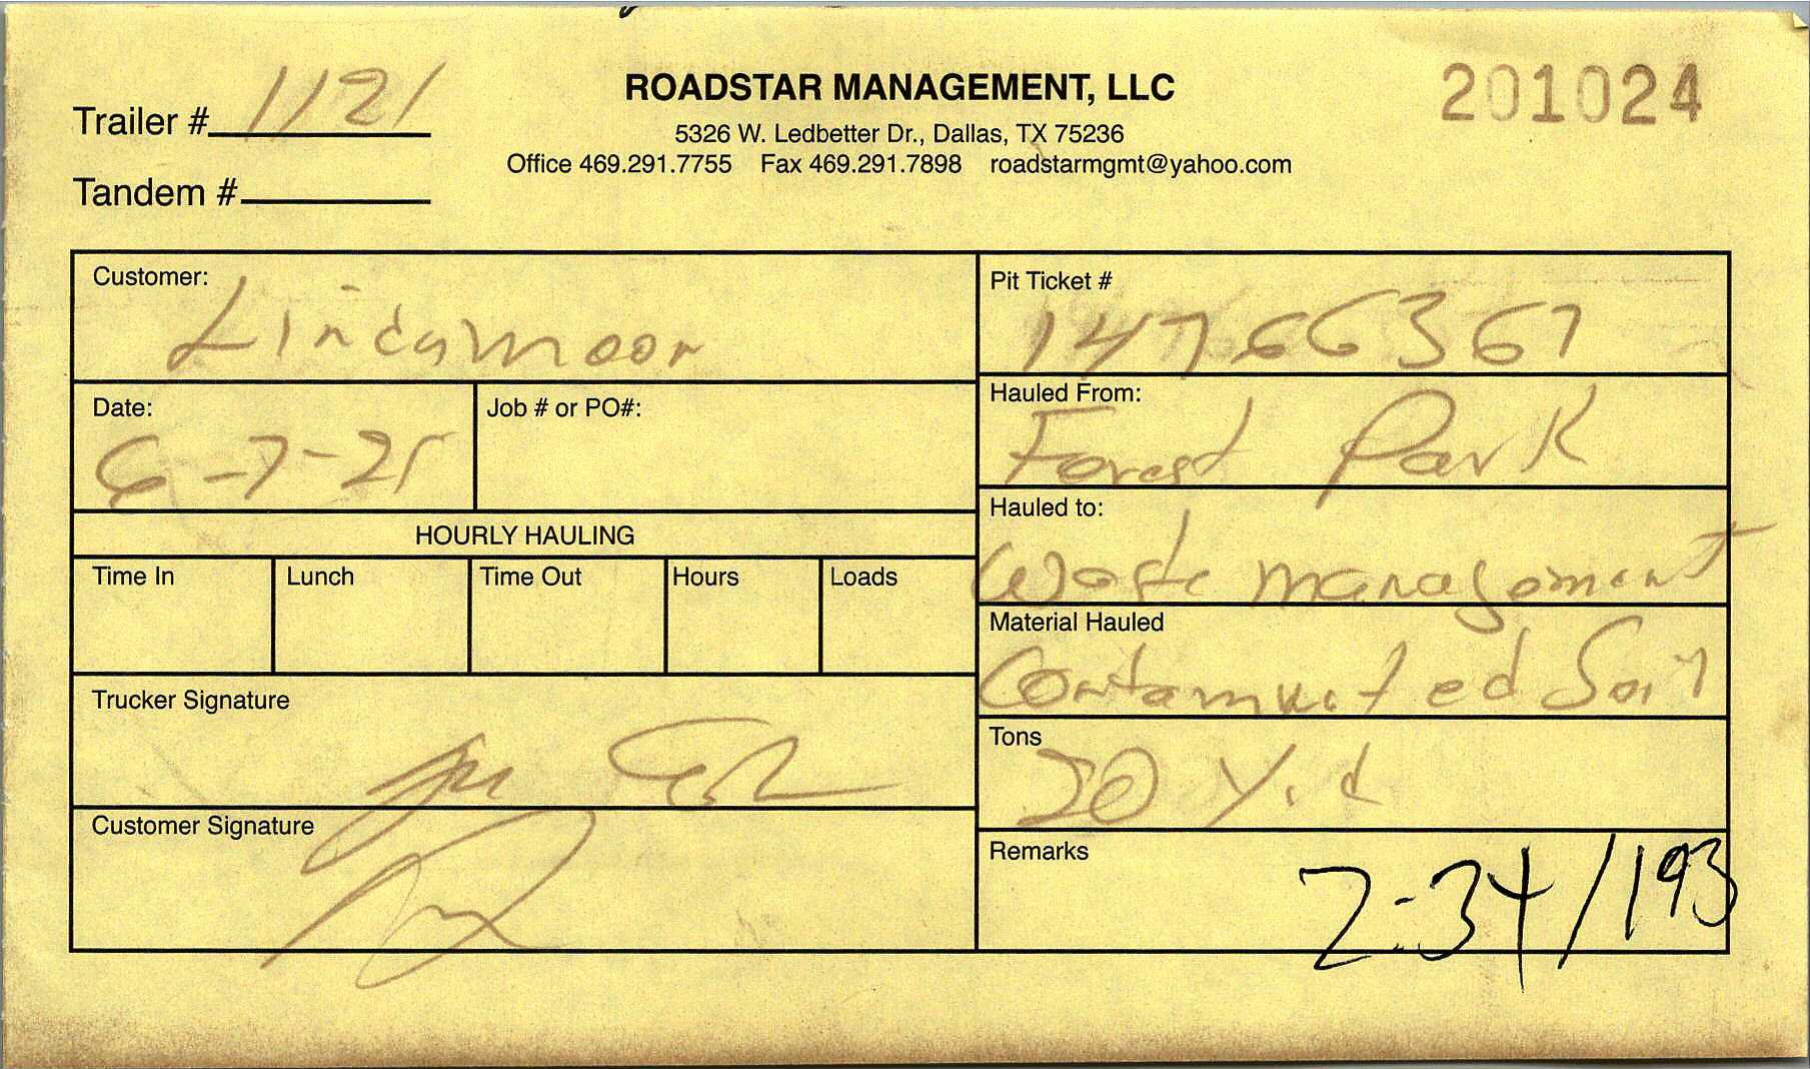 Trailer # 1121
ROADSTAR MANAGEMENT, LLC
201024
5326 W. Ledbetter Dr., Dallas, TX 75236
Office 469.291.7755 Fax 469.291.7898 roadstarmgmt@yahoo.com
Tandem #
Customer:
Lindamoor
Pit Ticket #
14766367
Date:
6-7-21
Job # or PO#:
Hauled From:
Forest Park
HOURLY HAULING
Hauled to:
Waste management
Time In
Lunch
Time Out
Hours
Loads
Material Hauled
Contaminated Soil
Trucker Signature
Tons
20 Y.d
Customer Signature
Remarks
2-34/193